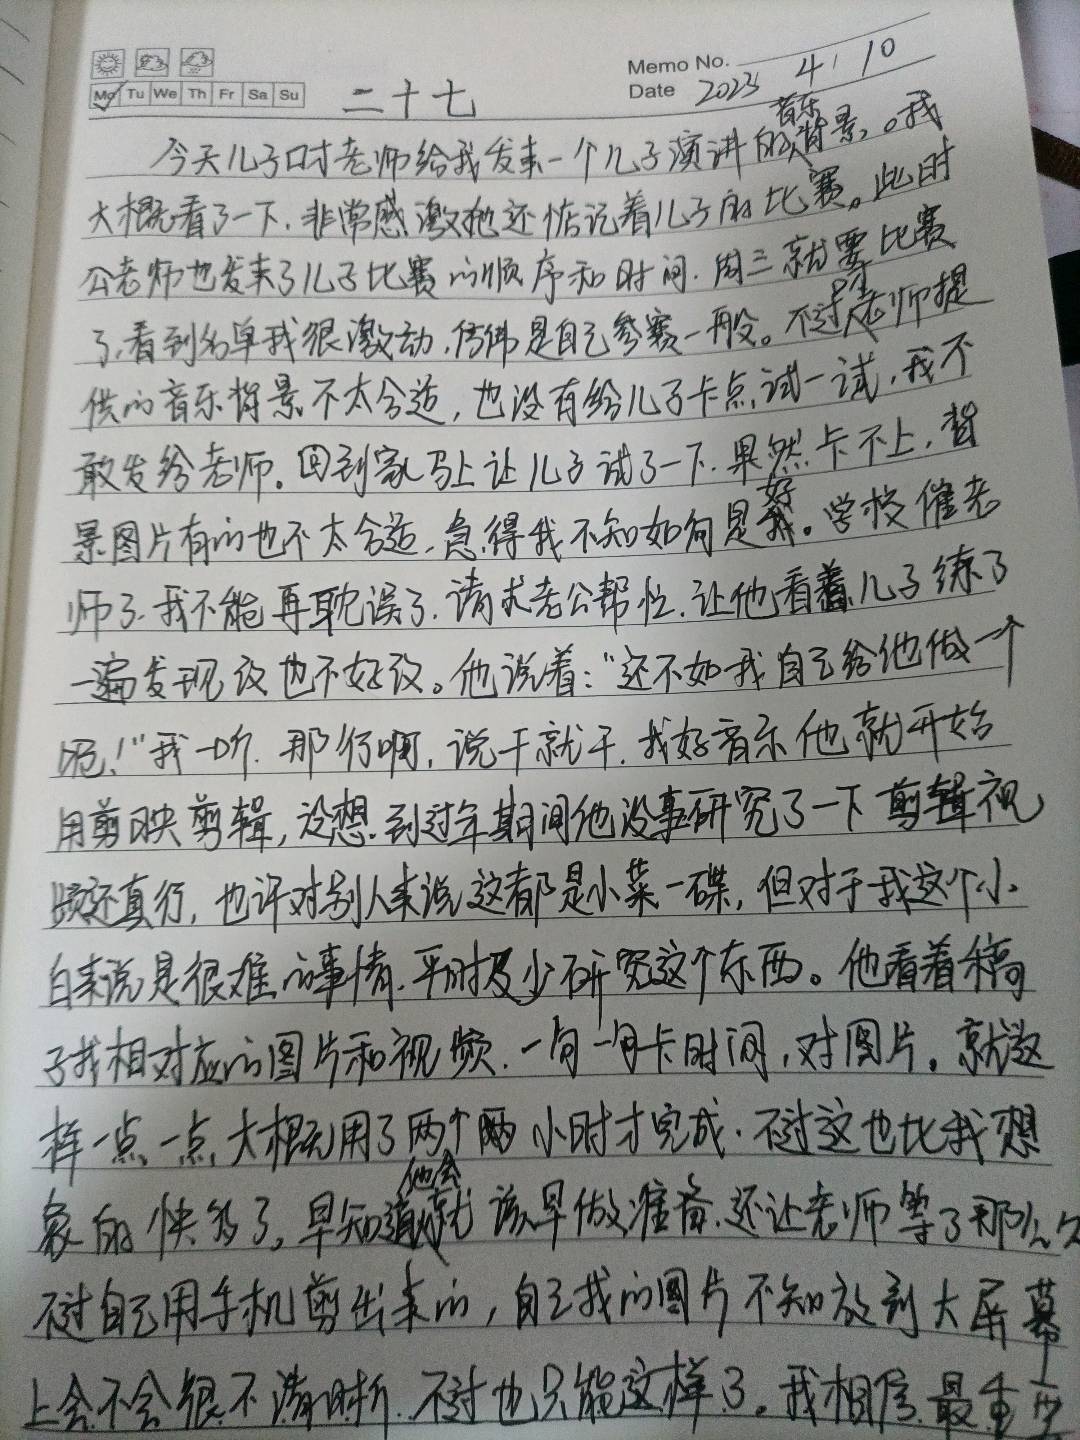 Memo No.
Mo Tu We Th Fr Sa Su
Date 2023 4 10
二十七
今天儿子口才老师给我发来一个儿子演讲的音乐背景。我
大概看了一下,非常感激她还惦记着儿子的比赛。此时
公老师也发来了儿子比赛的顺序和时间.周三就要比赛
了,看到名单我很激动,仿佛是自己参赛一般。不过老师提
供的音乐背景不太合适,也没有给儿子卡点试一试,我不
敢发给老师。回到家马上让儿子试了一下.果然卡不上,背
景图片有的也不太合适,急得我不知如何是好。学校催老
师了.我不能再耽误了.请求老公帮忙.让他看着儿子练了
一遍发现改也不好改。他说着:“还不如我自己给他做一个
吧!”我一听.那行啊,说干就干.找好音乐他就开始
用剪映剪辑,没想到过年期间他没事研究了一下剪辑视
频还真行,也许对别人来说这都是小菜一碟,但对于我这个小
白来说是很难的事情.平时及少研究这个东西。他看着稿
子找相对应的图片和视频.一句一句卡时间,对图片。就这
样一点一点大概用了两个两小时才完成.不过这也比我想
象的快多了。早知道他会就该早做准备.还让老师等了那么久
不过自己用手机剪出来的,自己找的图片不知放到大屏幕
上会不会很不清晰.不过也只能这样了。我相信最重要